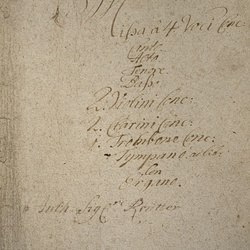 Missa à 4 Voci Conc:
Canto
Alto
Tenore
Basso
2. Violini Conc:
2. Clarini Conc:
1. Trombone Conc:
Tympano
Con
Organo.
Auth: Sigre Reutter